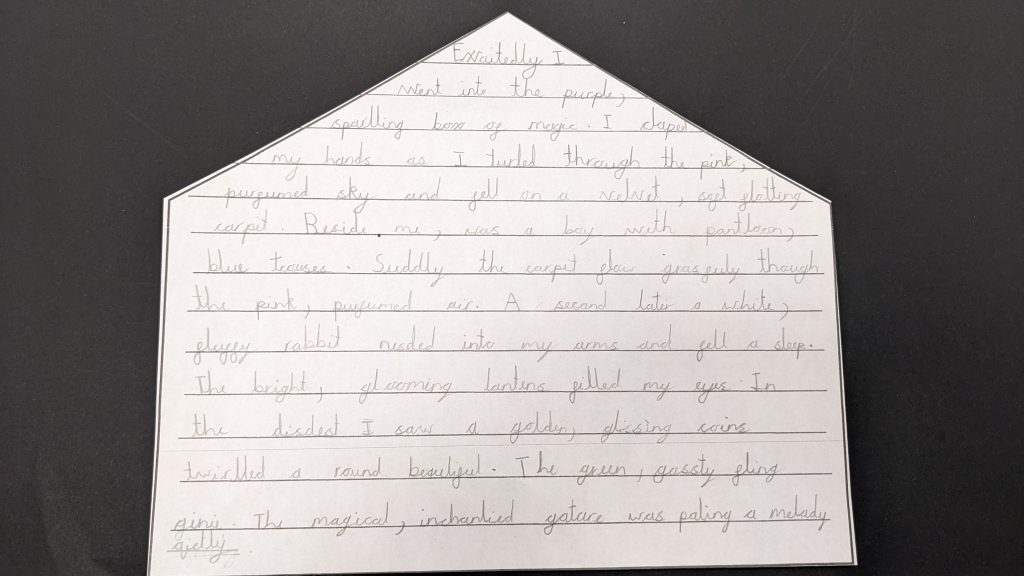 Excitedly I
went into the purple,
sparlling box of magic. I claped
my hands as I turled through the pink,
purfumed sky and fell on a velvet, soft flotting
carpit. Beside me, was a boy with pantloon,
blue trouses. Suddly the carpit flow grasfuly though
the pink, purfumed air. A second later a white,
fluffy rabbit rusded into my arms and fell a sleep.
The bright, glooming lantens filled my eyes. In
the disdest I saw a golden, glissing coins
twirlled a round beautiful. The green, gassty fling
ginii. The magical, inchantied gatare was paling a melady
qietly.